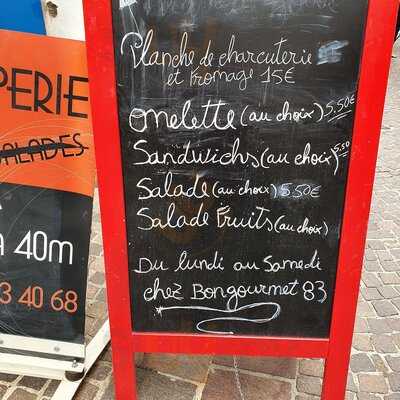 Planche de charcuterie
et fromage 15€
omelette (au choix) 5,50€
Sandwichs (au choix) 5,50
Salade (au choix) 5,50€
Salade Fruits (au choix)
Du lundi au Samedi
chez Bongourmet 83
PERIE
SALADES
40m
3 40 68